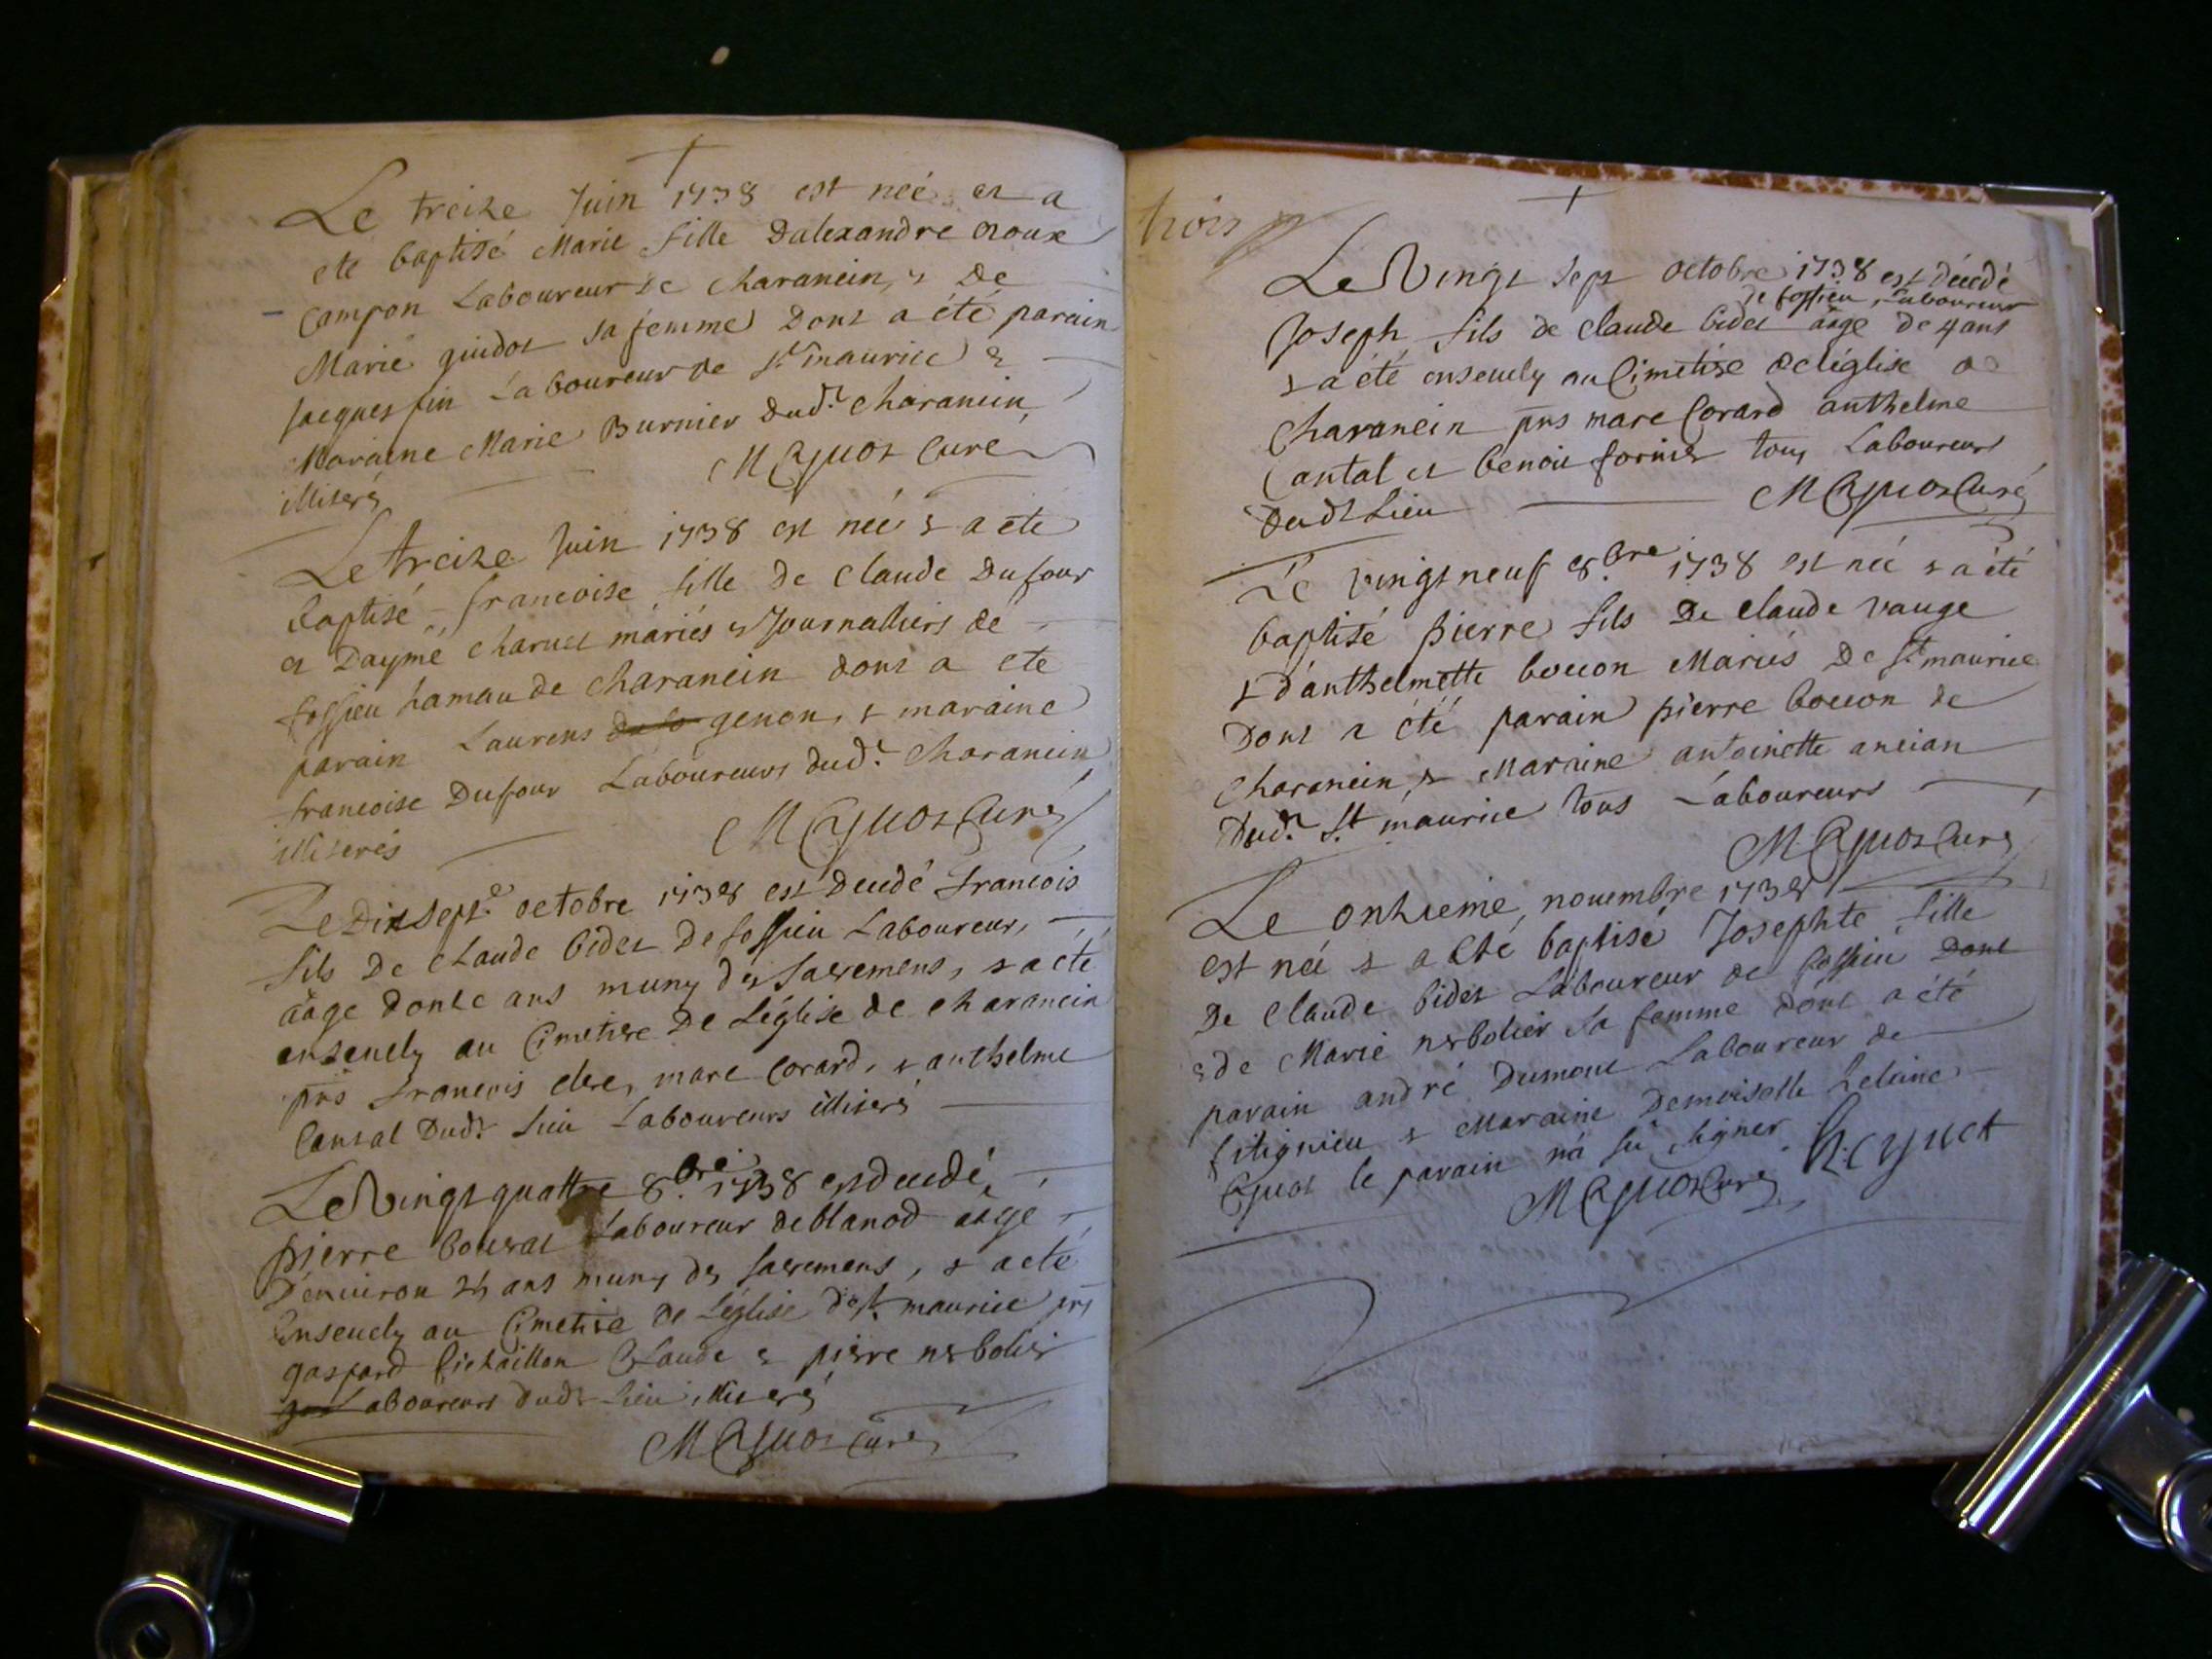 Le treize Juin 1738 est neé et a
ete baptisé Marie fille Dalexandre roux
Campon Laboureur de Charancin, & De
Marie guidot sa femme Dont a été parain
Jacques fin Laboureur de St maurice &
Maraine Marie Burnier Dudt Charancin
illiterés M Cyuot Curé
Le treize Juin 1738 est neé & a ete
baptisé francoise fille de Claude Dufour
et Daymé Charvet mariés & Journalliers de
fossieu hamau de Charancin dont a ete
parain Laurens genon, & maraine
francoise Dufour Laboureurs dudt Charancin
illiterés M Cyuot Curé
Le Dixsept octobre 1738 est Decedé francois
fils De Claude bidet De fossieu Laboureur,
aage donze ans muny des sacremens, & a été
ensevely au Cimetiere De Léglise de Charancin
pns francois clere, marc Corard, & anthelme
Cantal Dudt lieu Laboureurs illiterés
Le Vingt quattre 8.bre 1738 est decedé
pierre bouvat Laboureur de blanod aage
Denviron ans muny des sacremens, & a eté
Ensevely au Cimetiere de Léglise de St maurice pns
gaspard Claude & pierre nerbolier
Laboureurs dudt lieu illiterés
M Cyuot Curé
trois
Le Vingt sept octobre 1738 est décedé
de fossieu, Laboureur
Joseph fils de Claude bidet aage de 4 ans
& a été ensevely au Cimetiere de léglise de
Charancin pns marc Corard anthelme
Cantal et benoit fornier tous Laboureurs
Dudt Lieu M Cyuot Curé
Le vingt neuf 8.bre 1738 est neé & a été
baptisé pierre fils De Claude vauge
& d'anthelmette bouon Mariés De St maurice
Dont a été parain pierre bouon de
Charancin, & Maraine antoinette ancian
Dudt St maurice tous Laboureurs
M Cyuot Curé
Le onzieme novembre 1738
est neé & a été baptisé Josephte fille
De Claude bidet Laboureur de fossieu Dont
& de Marie nerbolier sa femme dont a été
parain andré Dumont Laboureur de
fitignieu & Maraine Demoiselle
Cyuot le parain n'a sû signer
M Cyuot Curé